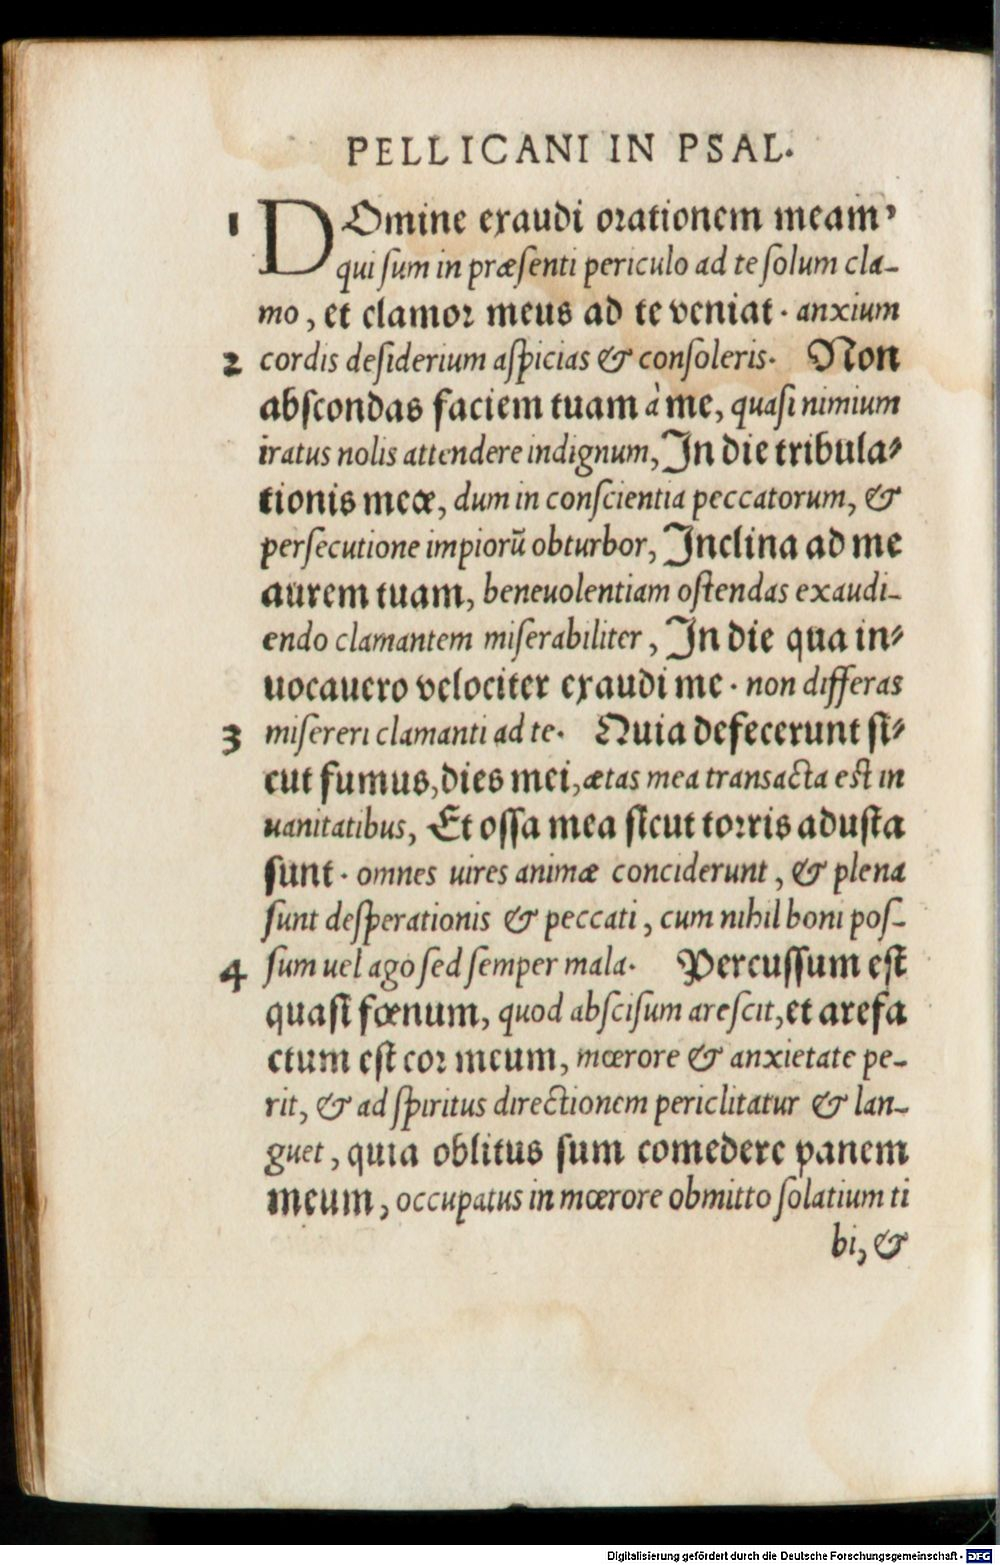 PELLICANI IN PSAL.
1 DOmine exaudi orationem meam,
qui sum in præsenti periculo ad te solum cla-
mo, et clamor meus ad te veniat. anxium
2 cordis desiderium aspicias & consoleris. Non
abscondas faciem tuam à me, quasi nimium
iratus nolis attendere indignum, In die tribula-
tionis meæ, dum in conscientia peccatorum, &
persecutione impiorū obturbor, Inclina ad me
aurem tuam, beneuolentiam ostendas exaudi-
endo clamantem miserabiliter, In die qua in-
uocauero velociter exaudi me. non differas
3 misereri clamanti ad te. Quia defecerunt si-
cut fumus, dies mei, ætas mea transacta est in
uanitatibus, Et ossa mea sicut torris adusta
sunt. omnes uires animæ conciderunt, & plena
sunt desperationis & peccati, cum nihil boni pos-
4 sum uel ago sed semper mala. Percussum est
quasi fœnum, quod abscisum arescit, et arefa
ctum est cor meum, mœrore & anxietate pe-
rit, & ad spiritus directionem periclitatur & lan-
guet, quia oblitus sum comedere panem
meum, occupatus in mœrore obmitto solatium ti
bi, &
Digitalisierung gefördert durch die Deutsche Forschungsgemeinschaft - DFG